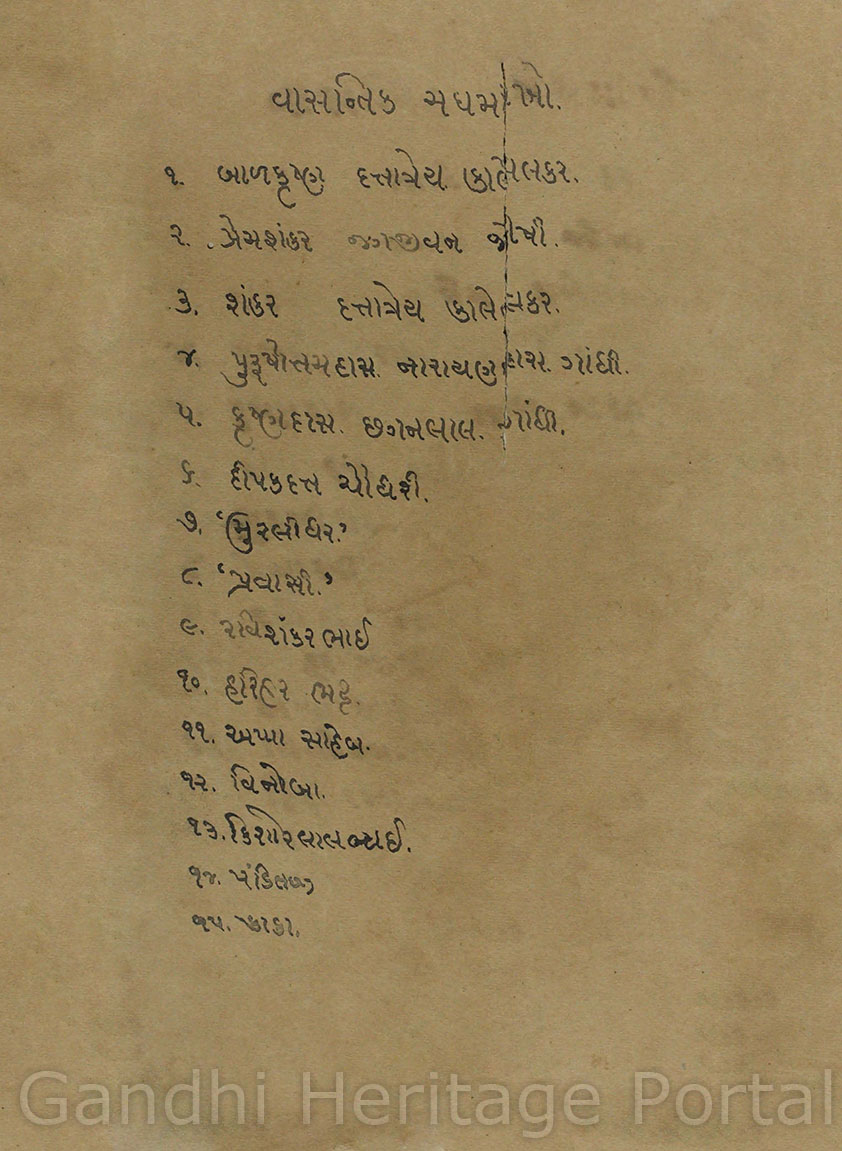 વાસન્તિક મધમાખો.
૧. બાળકૃષ્ણ દત્તાત્રેય કાલેલકર.
૨. પ્રેમશંકર જગજીવન જોષી.
૩. શંકર દત્તાત્રેય કાલેલકર.
૪. પુરૂષોત્તમદાસ નારાયણદાસ ગાંધી.
૫. કૃષ્ણદાસ. છગનલાલ. ગાંધી.
૬. દીપકદત્ત ચૌધરી.
૭. ‘મુરલીધર.’
૮. ‘પ્રવાસી.’
૯. રવિશંકરભાઈ
૧૦. હરિહર ભટ્ટ.
૧૧. અપ્પા સાહેબ.
૧૨. વિનોબા.
૧૩. કિશોરલાલભાઈ.
૧૪. પંડિતજી
૧૫. કાકા.
Gandhi Heritage Portal